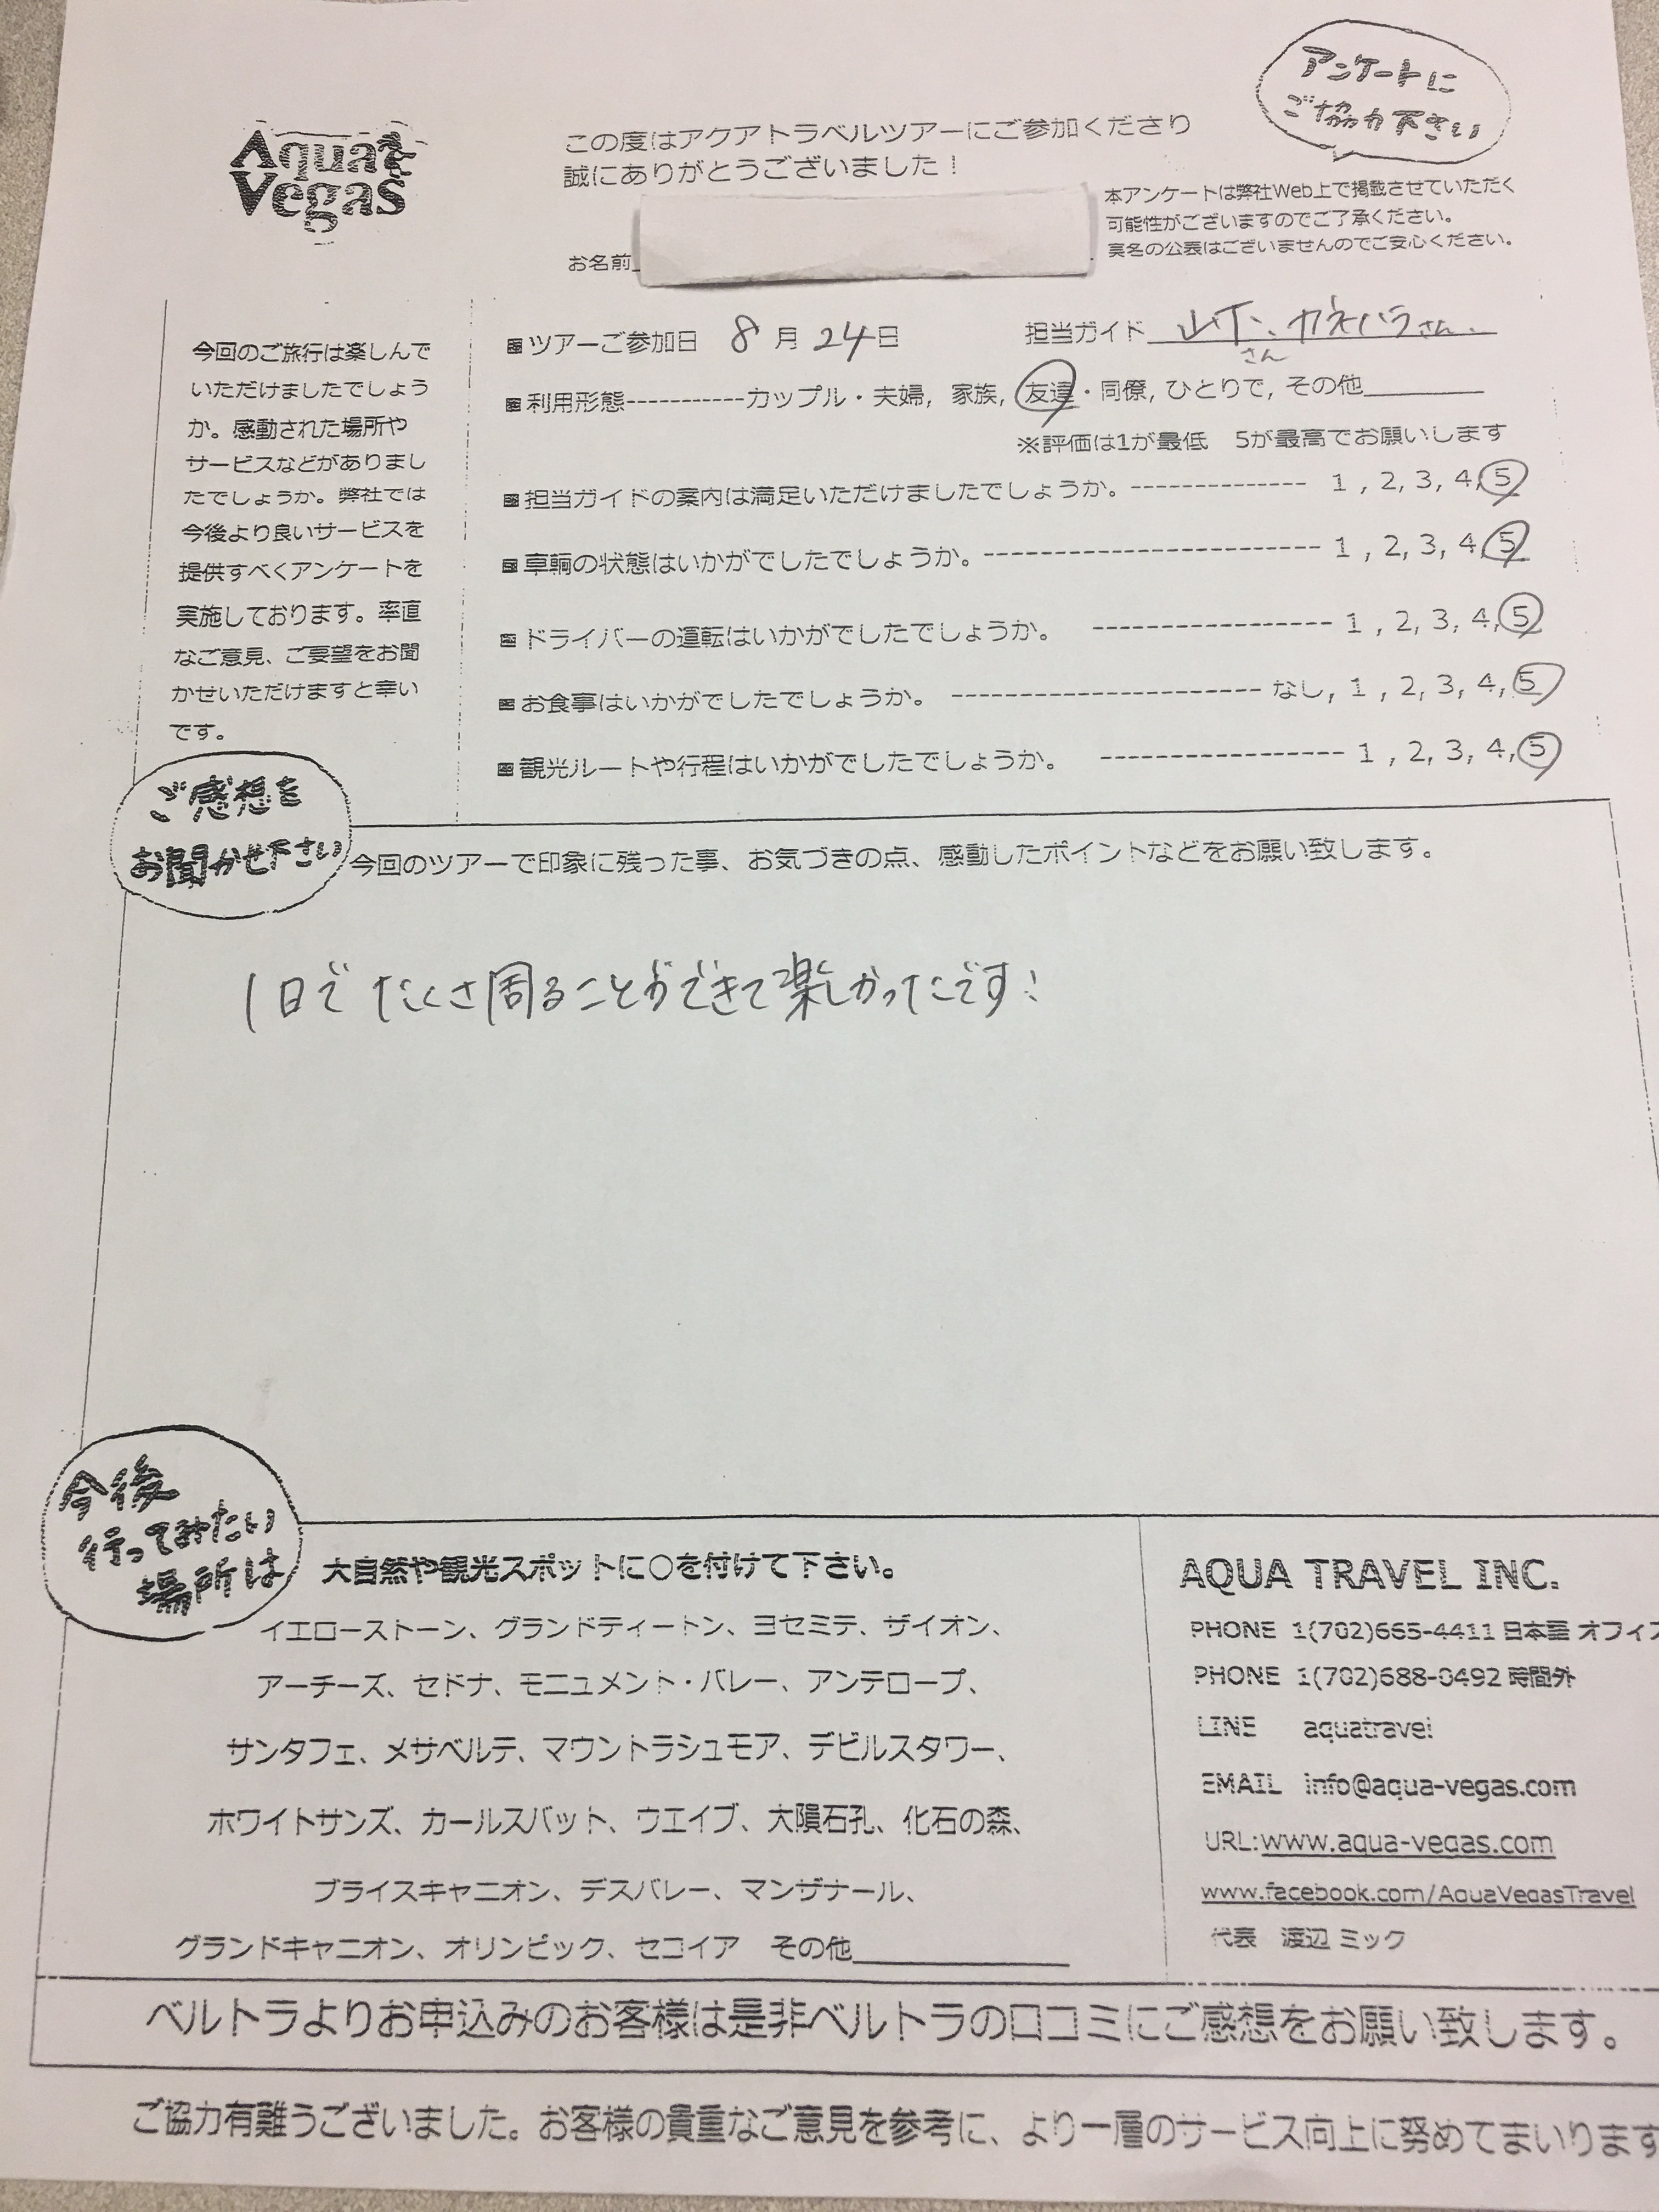 アンケートに
ご協力下さい
Aqua
Vegas
この度はアクアトラベルツアーにご参加くださり
誠にありがとうございました！
本アンケートは弊社Web上で掲載させていただく
可能性がございますのでご了承ください。
実名の公表はございませんのでご安心ください。
お名前
今回のご旅行は楽しんで
いただけましたでしょう
か。感動された場所や
サービスなどがありまし
たでしょうか。弊社では
今後より良いサービスを
提供すべくアンケートを
実施しております。率直
なご意見、ご要望をお聞
かせいただけますと幸い
です。
ツアーご参加日 8月24日 担当ガイド 山下さん、カネハラさん
利用形態-----------カップル・夫婦, 家族, 友達・同僚, ひとりで, その他
※評価は1が最低 5が最高でお願いします
担当ガイドの案内は満足いただけましたでしょうか。-------------- 1 , 2, 3, 4, 5
車輌の状態はいかがでしたでしょうか。--------------------------- 1 , 2, 3, 4, 5
ドライバーの運転はいかがでしたでしょうか。 ------------------- 1 , 2, 3, 4, 5
お食事はいかがでしたでしょうか。 ------------------------- なし, 1 , 2, 3, 4, 5
観光ルートや行程はいかがでしたでしょうか。 ------------------- 1 , 2, 3, 4, 5
ご感想を
お聞かせ下さい
今回のツアーで印象に残った事、お気づきの点、感動したポイントなどをお願い致します。
1日でたくさ周ることができて楽しかったです！
今後
行ってみたい
場所は
大自然や観光スポットに○を付けて下さい。
イエローストーン、グランドティートン、ヨセミテ、ザイオン、
アーチーズ、セドナ、モニュメント・バレー、アンテロープ、
サンタフェ、メサベルデ、マウントラシュモア、デビルスタワー、
ホワイトサンズ、カールスバット、ウエイブ、大隕石孔、化石の森、
ブライスキャニオン、デスバレー、マンザナール、
グランドキャニオン、オリンピック、セコイア その他
AQUA TRAVEL INC.
PHONE 1(702)665-4411 日本語 オフィス
PHONE 1(702)688-0492 時間外
LINE aquatravel
EMAIL info@aqua-vegas.com
URL:www.aqua-vegas.com
www.facebook.com/AquaVegasTravel
代表 渡辺 ミック
ベルトラよりお申込みのお客様は是非ベルトラの口コミにご感想をお願い致します。
ご協力有難うございました。お客様の貴重なご意見を参考に、より一層のサービス向上に努めてまいります